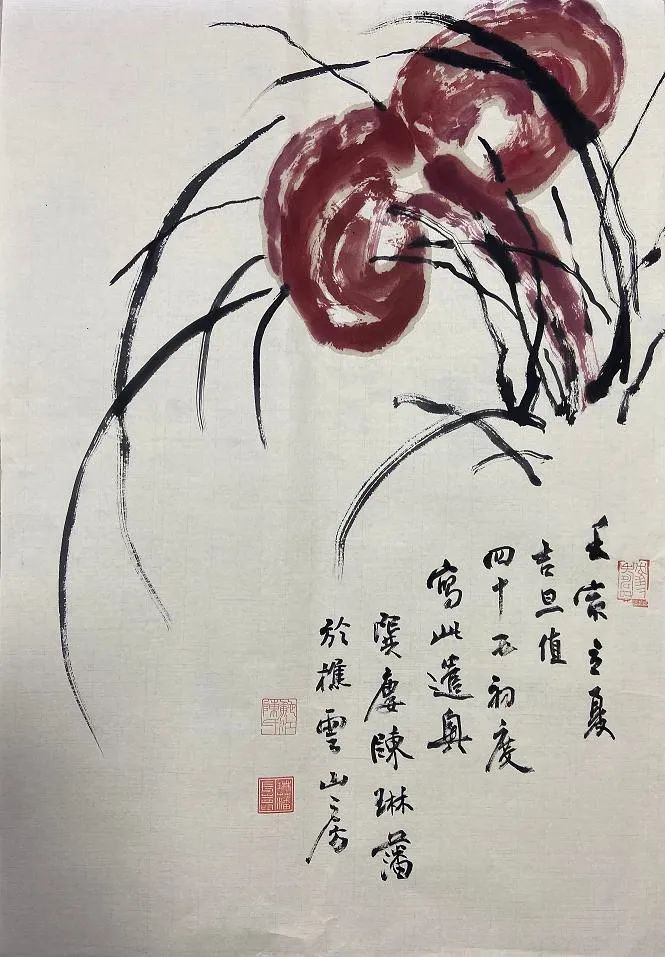 壬寅立夏
吉旦值
四十五初度
寫此遣興
陳琳藩
於樵雲山房